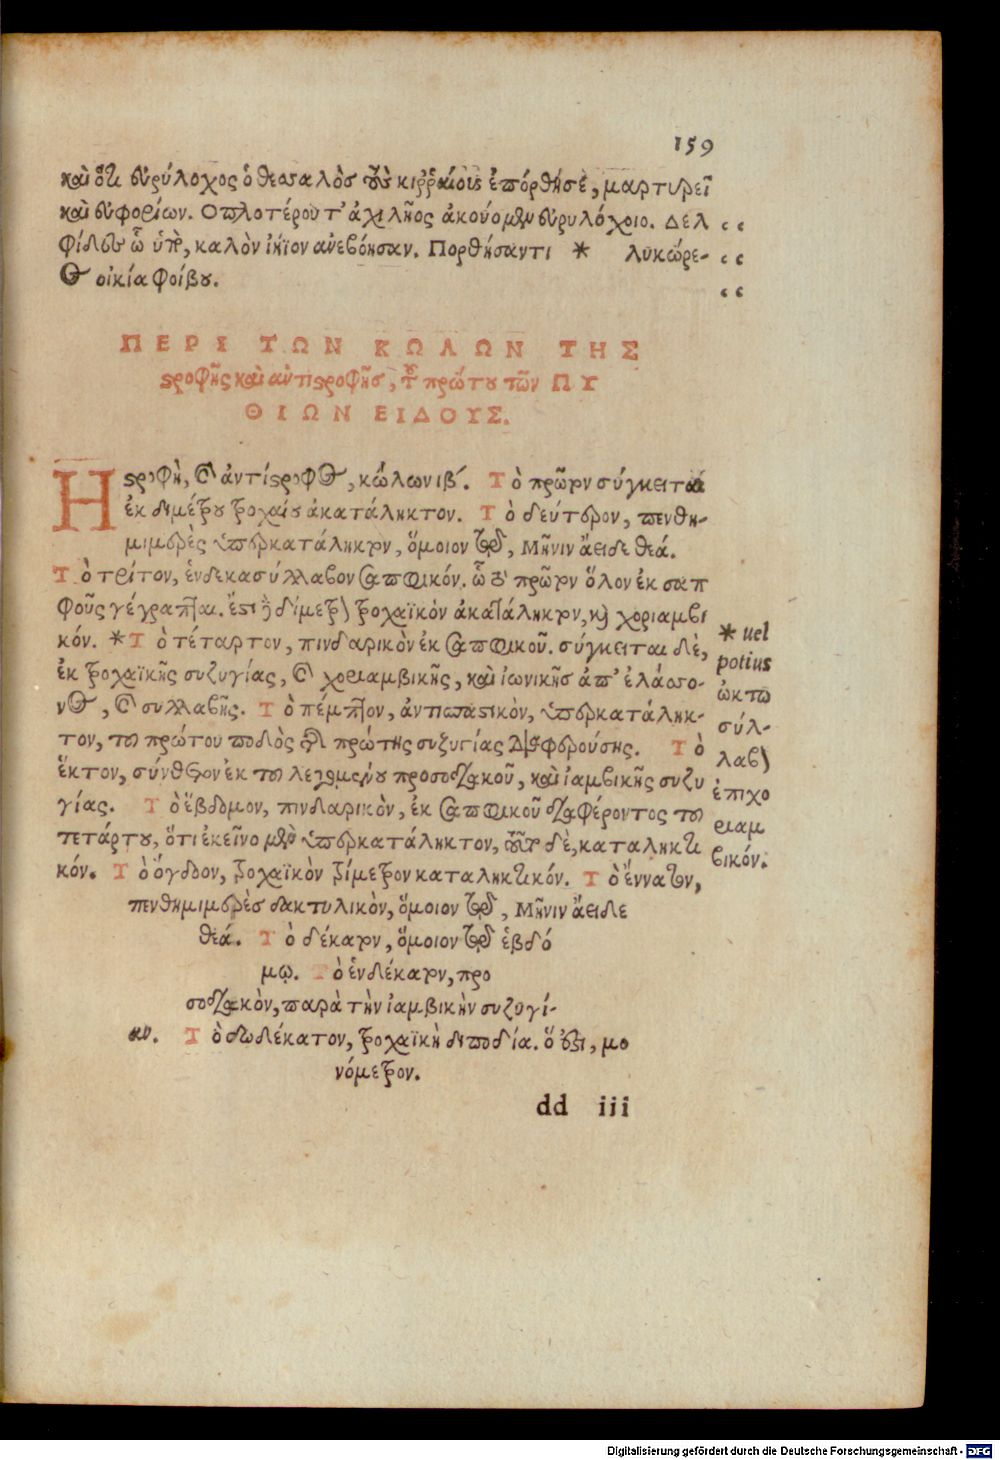 159
καὶ ὅτι εὐρύλοχος ὁ θεσσαλὸσ τοὺς κιῤῥαίους ἐπόρθησε, μαρτυρεῖ
καὶ εὐφορίων. Οπλοτέρου τ' ἀχιλῆος ἀκούομεν εὐρυλόχοιο. Δελ
φίδες ᾧ ὑπὸ, καλὸν ἰήϊον ἀνεβόησαν. Πορθήσαντι * λυκώρε-
ος οἰκία φοίβου.
ΠΕΡΙ ΤΩΝ ΚΩΛΩΝ ΤΗΣ
στροφῆς καὶ ἀντιστροφῆσ, τοῦ πρώτου τῶν ΠΥ
ΘΙΩΝ ΕΙΔΟΥΣ.
Η στροφὴ, καὶ ἀντίστροφος, κώλων ιβ΄. Τὸ πρῶτον σύγκειται
ἐκ διμέτρου τροχαίου ἀκατάληκτον. Τὸ δεύτερον, πενθη-
μιμερὲς ὑπερκατάληκτον, ὅμοιον τῷ, Μῆνιν ἄειδε θεά.
Τὸ τρίτον, ἑνδεκασύλλαβον σαπφικόν. ᾧ τὸ πρῶτον ὅλον ἐκ σαπ
φοῦς γέγραπται. ἔστι δὲ δίμετρον τροχαϊκὸν ἀκατάληκτον, καὶ χοριαμβι
κόν. * Τὸ τέταρτον, πινδαρικὸν ἐκ σαπφικοῦ. σύγκειται δὲ,
ἐκ τροχαϊκῆς συζυγίας, καὶ χοριαμβικῆς, καὶ ἰωνικῆσ ἀπ' ἐλάσσο-
νος, καὶ συλλαβῆς. Τὸ πέμπτον, ἀντισπαστικὸν, ὑπερκατάληκ-
τον, τοῦ πρώτου ποδὸς τῆς πρώτης συζυγίας διαφερούσης. Τὸ
ἕκτον, σύνθετον ἐκ τοῦ λεγομένου προσοδιακοῦ, καὶ ἰαμβικῆς συζυ
γίας. Τὸ ἕβδομον, πινδαρικὸν, ἐκ σαπφικοῦ διαφέροντος τοῦ
τετάρτου, ὅτι ἐκεῖνο μὲν ὑπερκατάληκτον, τοῦτο δὲ, καταληκτι
κόν. Τὸ ὄγδοον, τροχαϊκὸν τρίμετρον καταληκτικόν. Τὸ ἔννατον,
πενθημιμερὲσ δακτυλικὸν, ὅμοιον τῷ, Μῆνιν ἄειδε
θεά. Τὸ δέκατον, ὅμοιον τῷ ἑβδό
μῳ. Τὸ ἑνδέκατον, προ
σοδιακὸν, παρὰ τὴν ἰαμβικὴν συζυγί-
αν. Τὸ δωδέκατον, τροχαϊκὴ διποδία. ὅ ἐστι, μο
νόμετρον.
* uel
potius
ὠκτω
σύλ-
λαβον
ἐπιχο
ριαμ
βικόν.
dd iii
Digitalisierung gefördert durch die Deutsche Forschungsgemeinschaft - DFG